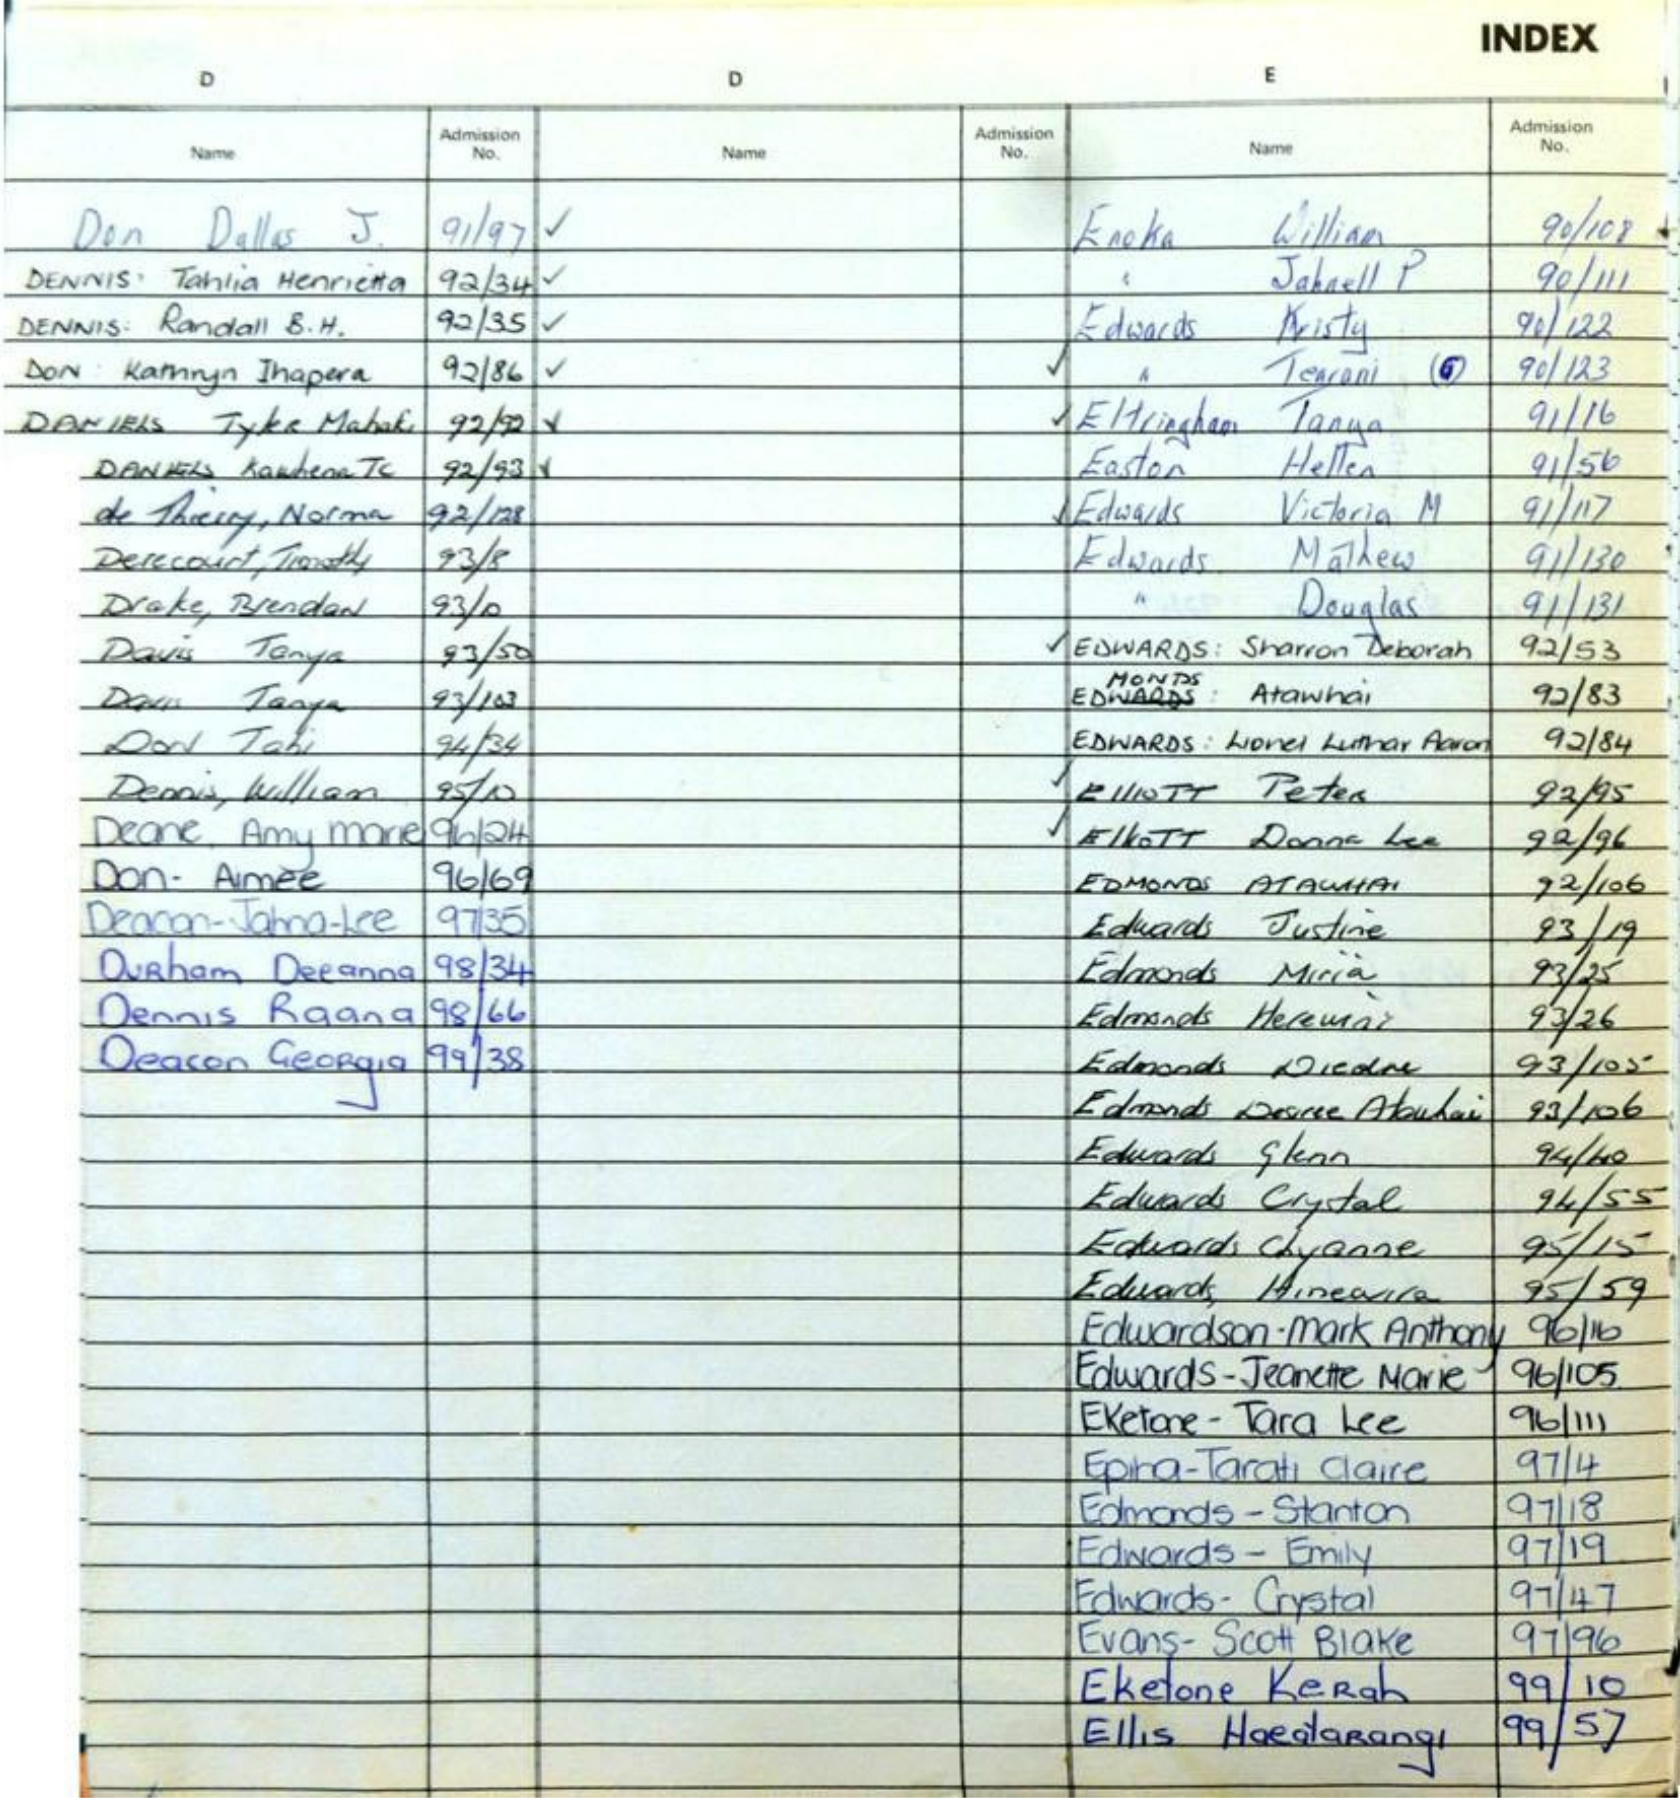 INDEX
D
Name Admission No.
Don Dallas J. 91/97 ✓
DENNIS: Tahlia Henrietta 92/34 ✓
DENNIS: Randall B.H. 92/35 ✓
DON: Kathryn Ihapera 92/86 ✓
DANIELS Tyler Mahaki 92/92 ✓
DANIELS Kawhena Tc 92/93 ✓
de Thierry, Norma 92/128
Derecourt, Timothy 93/8
Drake, Brendan 93/10
Davis Tanya 93/50
Davis Tanya 93/103
Don Tahi 94/34
Dennis, William 95/10
Deane, Amy marie 96/24
Don- Aimee 96/69
Deacon-Jahna-Lee 97/35
Durham Deeanna 98/34
Dennis Raana 98/66
Deacon Georgia 99/38
D
Name Admission No.
E
Name Admission No.
Enoka William 90/108
" Jahnell P 90/111
Edwards Kristy 90/122
✓ " 90/123
✓ Eltringham Tanya 91/16
Easton Hellen 91/56
✓ Edwards Victoria M 91/117
Edwards Mathew 91/130
" Douglas 91/131
✓ EDWARDS: Sharron Deborah 92/53
MONDS
EDWARDS: Atawhai 92/83
EDWARDS: Lionel Luthar Aaron 92/84
✓ Elliott Peter 92/95
✓ Elliott Donna Lee 92/96
EDMONDS ATAWHAI 92/106
Edwards Justine 93/19
Edmonds Miria 93/25
Edmonds Herewini 93/26
Edmonds Diedre 93/105
Edmonds Desiree Atawhai 93/106
Edwards Glenn 94/40
Edwards Crystal 94/55
Edwards Chyanne 95/15
Edwards, Hineawira 95/59
Edwardson-Mark Anthony 96/16
Edwards-Jeanette Marie 96/105
EKetone- Tara Lee 96/111
Epiha-Tarati Claire 97/4
Edmonds - Stanton 97/18
Edwards - Emily 97/19
Edwards- Crystal 97/47
Evans- Scott Blake 97/96
Eketone Kerah 99/10
Ellis Haeatarangi 99/57